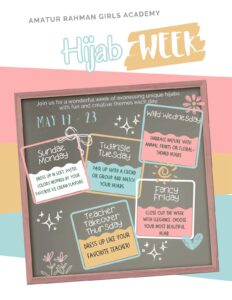 AMATUR RAHMAN GIRLS ACADEMY
Hijab WEEK
Join us for a wonderful week of expressing unique hijabs
with fun and creative themes each day
MAY 19 - 23
Sundae
Monday
DRESS UP IN SOFT, PASTEL
COLORS INSPIRED BY YOUR
FAVORITE ICE CREAM FLAVORS
Twinsie
Tuesday
PAIR UP WITH A FRIEND
OR GROUP AND MATCH
YOUR HIJABS
Wild Wednesday
EMBRACE NATURE WITH
ANIMAL PRINTS OR FLORAL-
THEMED HIJABS
Teacher
Takeover
Thursday
DRESS UP LIKE YOUR
FAVORITE TEACHER!
Fancy
Friday
CLOSE OUT THE WEEK
WITH ELEGANCE. CHOOSE
YOUR MOST BEAUTIFUL
HIJAB